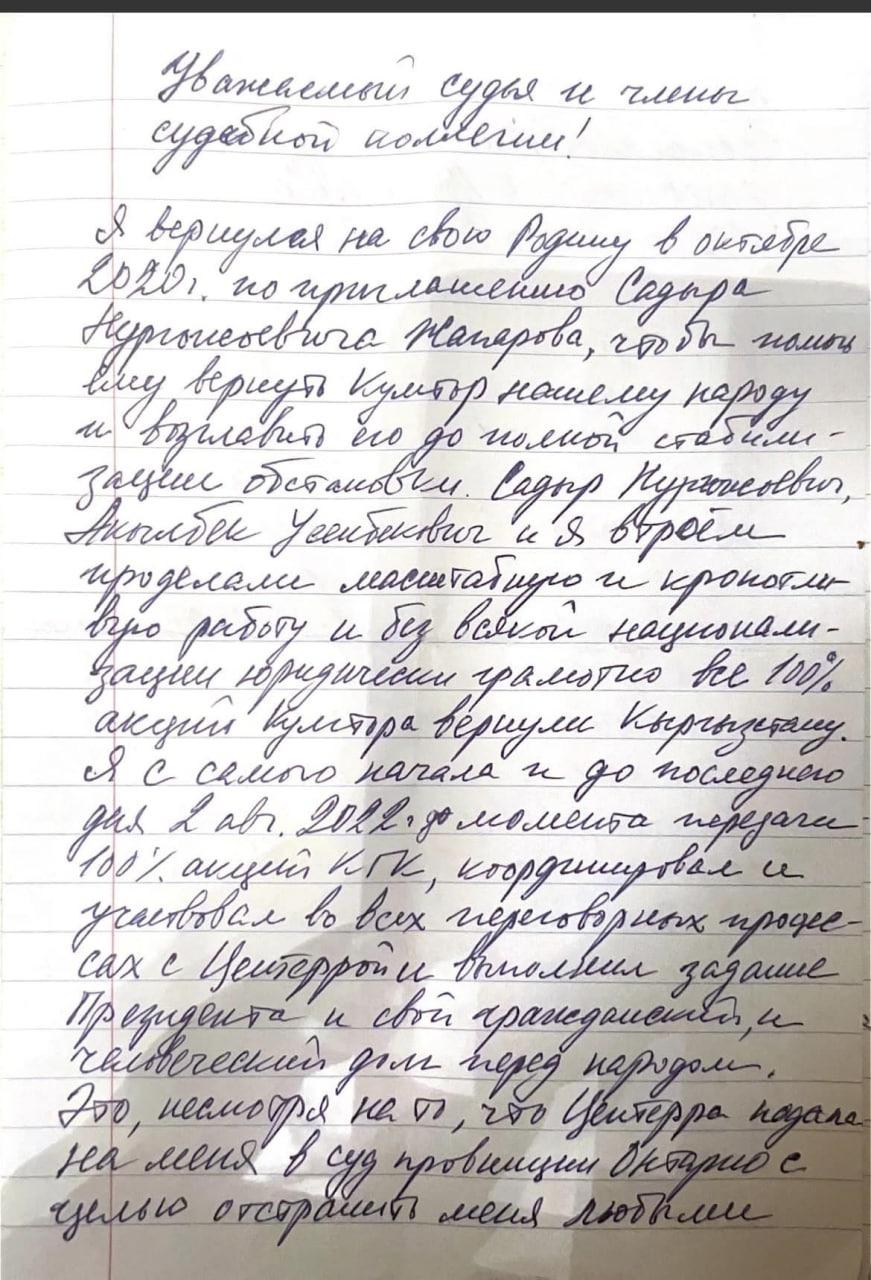 Уважаемый судья и члены
судебной коллегии!
Я вернулся на свою Родину в октябре
2020г. по приглашению Садыра
Нургожоевича Жапарова, чтобы помочь
ему вернуть Кумтор нашему народу
и возглавить его до полной стабили-
зации обстановки. Садыр Нургожоевич,
Акылбек Усенбекович и я втроём
проделали масштабную и кропотли-
вую работу и без всякой национали-
зации юридически грамотно все 100%
акций Кумтора вернули Кыргызстану.
Я с самого начала и до последнего
дня 2 авг. 2022г до момента передачи
100% акций КГК, координировал и
участвовал во всех переговорных процес-
сах с Центеррой и выполнил задание
Президента и свой гражданский, и
человеческий долг перед народом.
Это, несмотря на то, что Центерра подала
на меня в суд провинции Онтарио с
целью отстранить меня любыми